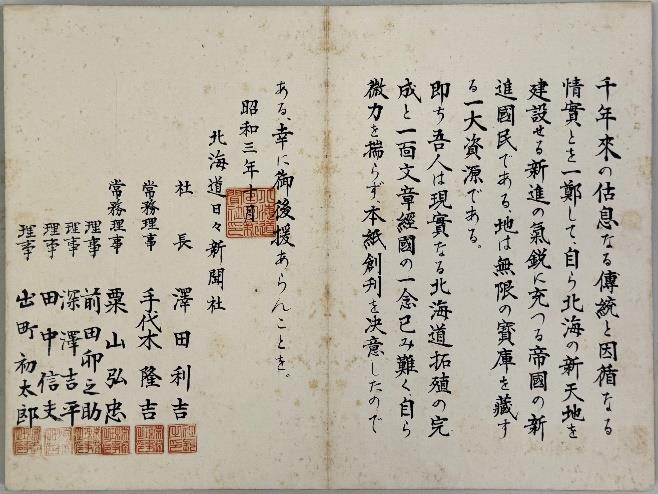 千年來の估息なる傳統と因循なる
情實とを一鄭して、自ら北海の新天地を
建設せる新進の氣鋭に充つる帝國の新
進國民である地は無限の寶庫を藏す
る一大資源である。
即ち吾人は現實なる北海道拓殖の完
成と一面文章經國の一念已み難く自ら
微力を揣らず本紙創刋を决意したので
ある、幸に御後援あらんことを。
昭和三年十月
北海道日々新聞社
社長 澤田利吉
常務理事 手代木隆吉
常務理事 粟山弘忠
理事 前田卯之助
理事 深澤吉平
理事 田中信夫
理事 出町初太郎